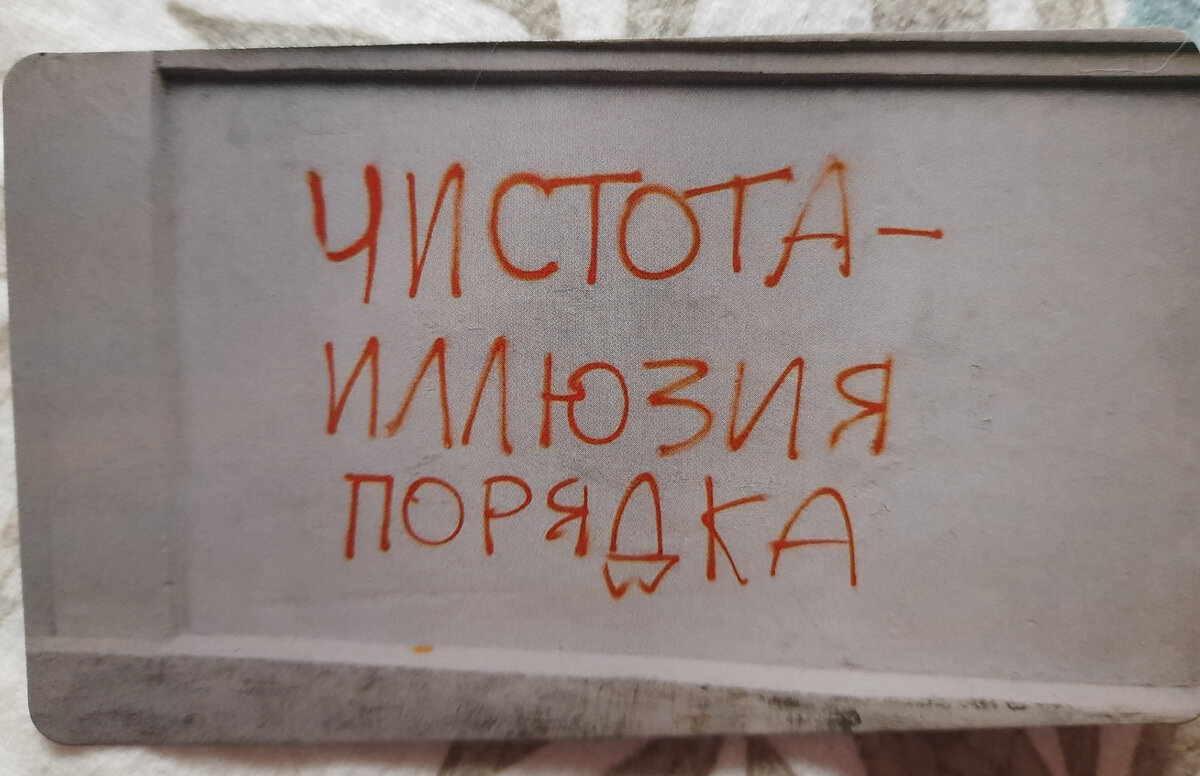 ЧИСТОТА -
ИЛЛЮЗИЯ
ПОРЯДКА